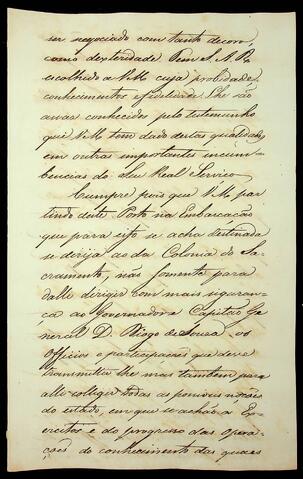 ser negociado com tanto decoro,
como dexteridade Tem S. A. R.
escolhido a VM cuja probidade
conhecimentos e fidelidade lhe são
assas conhecidos pelo testemunho
que VM tem dado destas qualidades
em outras importantes incum-
bencias do Seu Real Serviço
Cumpre pois que VM par
tindo deste Porto na Embarcação
que para isso se acha destinada
se dirija ao da Colonia do Sa-
cramento, nao somente para
dalli dirigir com mais seguran-
ça ao Governador e Capitão Ge
neral D. Diogo de Souza os
Officios e participações que deve
transmitir lhe mas tambem para
alli colligir todas as possiveis noções
do estado, em que se achao a Ex-
ercitos e do progresso das opera-
ções do conhecimento das quaes